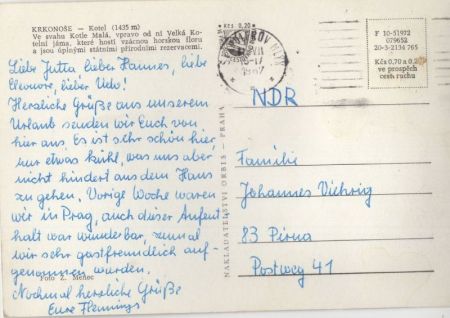 KRKONOŠE – Kotel (1435 m)
Ve svahu Kotle Malá, vpravo od ní Velká Ko-
telní jáma, které hostí vzácnou horskou floru
a jsou úplnými státními přírodními rezervacemi.
Liebe Jutta, lieber Hannes, liebe
Eleonore, lieber Udo!
Herzliche Grüße aus unserem
Urlaub senden wir Euch von
hier aus. Es ist sehr schön hier,
nur etwas kühl, was uns aber
nicht hindert aus dem Haus
zu gehen. Vorige Woche waren
wir in Prag, auch dieser Aufent-
halt war wunderbar, zumal
wir sehr gastfreundlich auf-
genommen wurden.
Nochmal herzliche Grüße
Eure Flemmings
Foto Z. Menec
NAKLADATELSTVÍ ORBIS – PRAHA
Kčs 0,20
F 10-51972
079652
20-3-2134 765
Kčs 0,70 a 0,20
ve prospěch
cest. ruchu
NDR
Familie
Johannes Viehrig
83 Pirna
Postweg 41